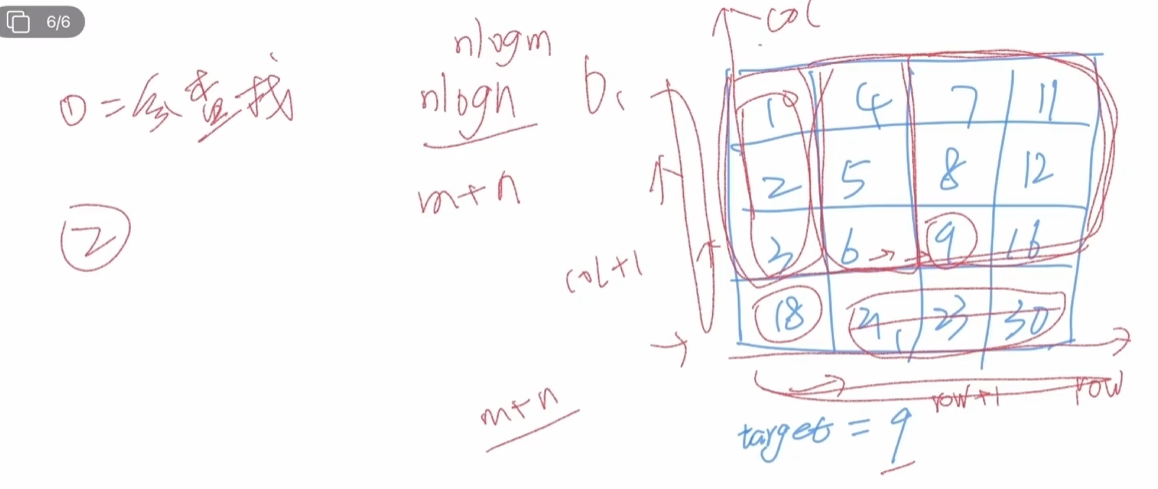 6/6
① 二分查找
nlogm
nlogn
m+n
②
col+1
m+n
col
1 4 7 11
2 5 8 12
3 6 9 16
18 21 23 30
row+1
row
target = 9